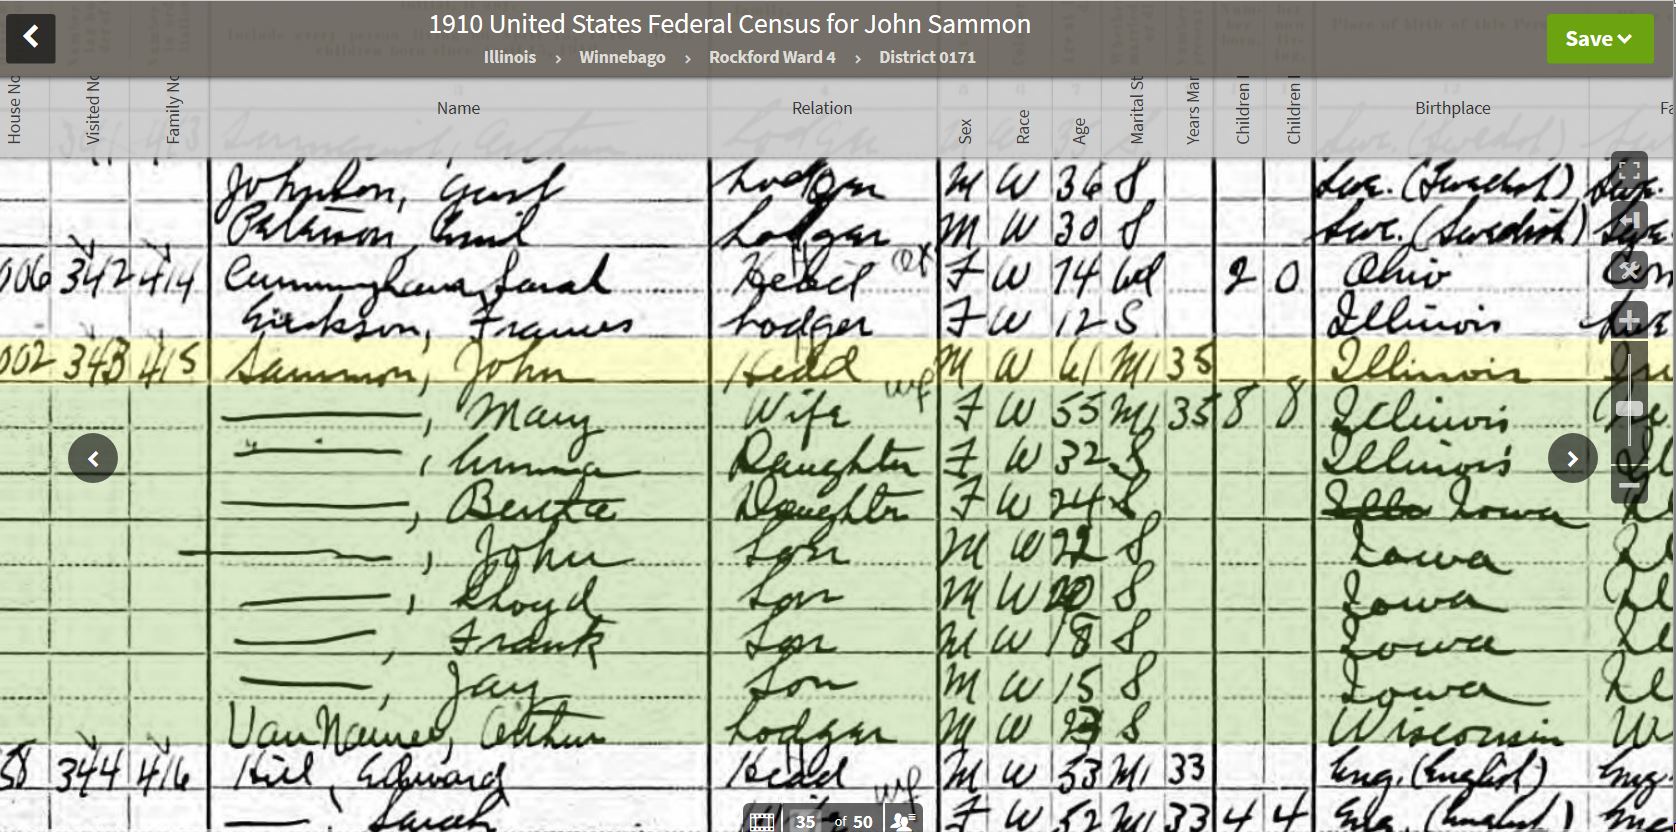 1910 United States Federal Census for John Sammon
Illinois › Winnebago › Rockford Ward 4 › District 0171
Save
House No Visited No Family No Name Relation Sex Race Age Marital St Years Mar Children Children Birthplace Fa
Johnson, Gust Lodger M W 36 S Swe. (Swedish)
Peterson, Emil Lodger M W 30 S Swe. (Swedish)
006 342 414 Cunningham, Sarah Head F W 74 Wd 2 0 Ohio
Erickson, Frances Lodger F W 12 S Illinois
002 343 415 Sammon, John Head M W 61 M1 35 Illinois
——, Mary Wife F W 55 M1 35 8 8 Illinois
——, Emma Daughter F W 32 S Illinois
——, Bertha Daughter F W 24 S Iowa
——, John Son M W 22 S Iowa
——, Lloyd Son M W 20 S Iowa
——, Frank Son M W 18 S Iowa
——, Jay Son M W 15 S Iowa
Arthur Lodger M W S Wisconsin W
58 344 416 Hill, Edward Head M W 53 M1 33 Eng. (English) Eng.
——, Sarah F W 52 M1 33 4 4 Eng. (English)
35 of 50